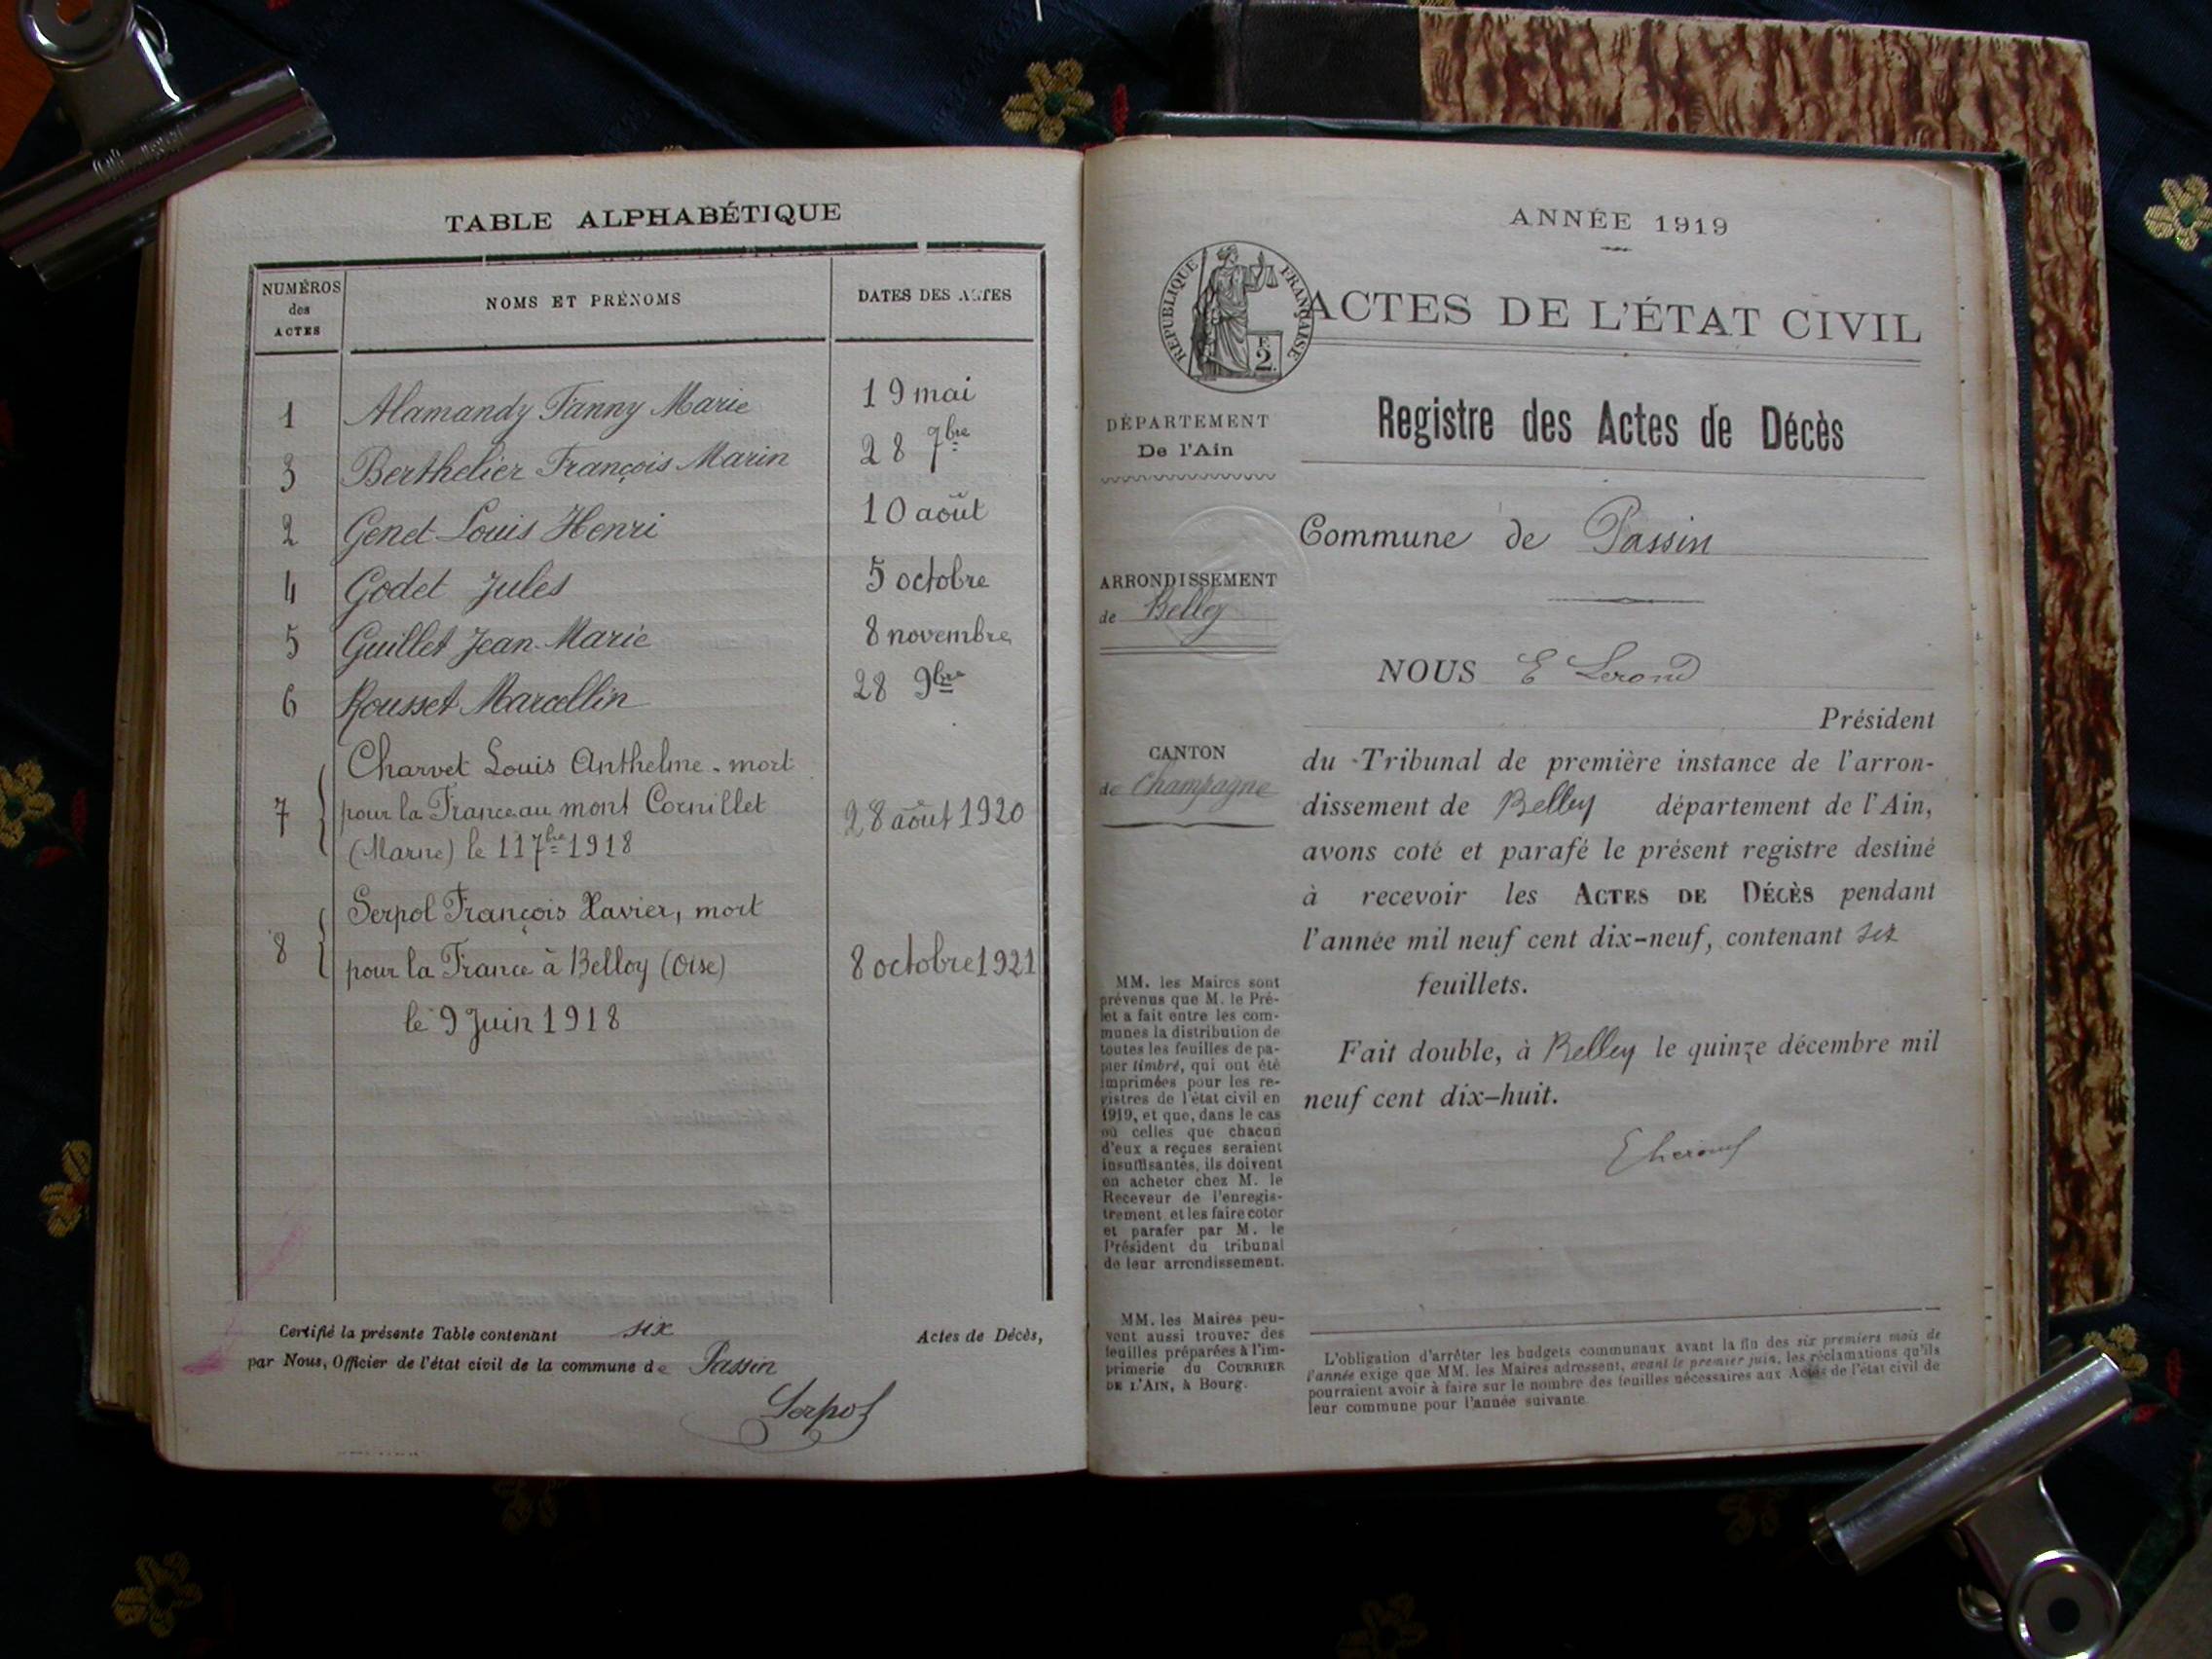 TABLE ALPHABÉTIQUE
NUMÉROS des ACTES
NOMS ET PRÉNOMS
DATES DES ACTES
1 Alamandy Fanny Marie 19 mai
3 Berthelier François Marin 28 7bre
2 Genet Louis Henri 10 août
4 Godet Jules 5 octobre
5 Guillet Jean-Marie 8 novembre
6 Rousset Marcellin 28 9bre
Charvet Louis Anthelme - mort
7 pour la France au mont Cornillet 28 août 1920
(Marne) le 11 7bre 1918
Serpol François Xavier, mort
8 pour la France à Belloy (Oise) 8 octobre 1921
le 9 Juin 1918
Certifié la présente Table contenant six Actes de Décès,
par Nous, Officier de l'état civil de la commune de Passin
Serpol
ANNÉE 1919
RÉPUBLIQUE FRANÇAISE
F. 2.
ACTES DE L'ÉTAT CIVIL
DÉPARTEMENT
De l'Ain
Registre des Actes de Décès
Commune de Passin
ARRONDISSEMENT
de Belley
NOUS E Lerond
Président
CANTON
de Champagne
du Tribunal de première instance de l'arron-
dissement de Belley département de l'Ain,
avons coté et parafé le présent registre destiné
à recevoir les ACTES DE DÉCÈS pendant
l'année mil neuf cent dix-neuf, contenant six
feuillets.
Fait double, à Belley le quinze décembre mil
neuf cent dix-huit.
MM. les Maires sont
prévenus que M. le Pré-
fet a fait entre les com-
munes la distribution de
toutes les feuilles de pa-
pier timbré, qui ont été
imprimées pour les re-
gistres de l'état civil en
1919, et que, dans le cas
où celles que chacun
d'eux a reçues seraient
insuffisantes, ils doivent
en acheter chez M. le
Receveur de l'enregis-
trement, et les faire coter
et parafer par M. le
Président du tribunal
de leur arrondissement.
MM. les Maires peu-
vent aussi trouver des
feuilles préparées à l'im-
primerie du COURRIER
DE L'AIN, à Bourg.
L'obligation d'arrêter les budgets communaux avant la fin des six premiers mois de
l'année exige que MM. les Maires adressent, avant le premier juin, les réclamations qu'ils
pourraient avoir à faire sur le nombre des feuilles nécessaires aux Actes de l'état civil de
leur commune pour l'année suivante.